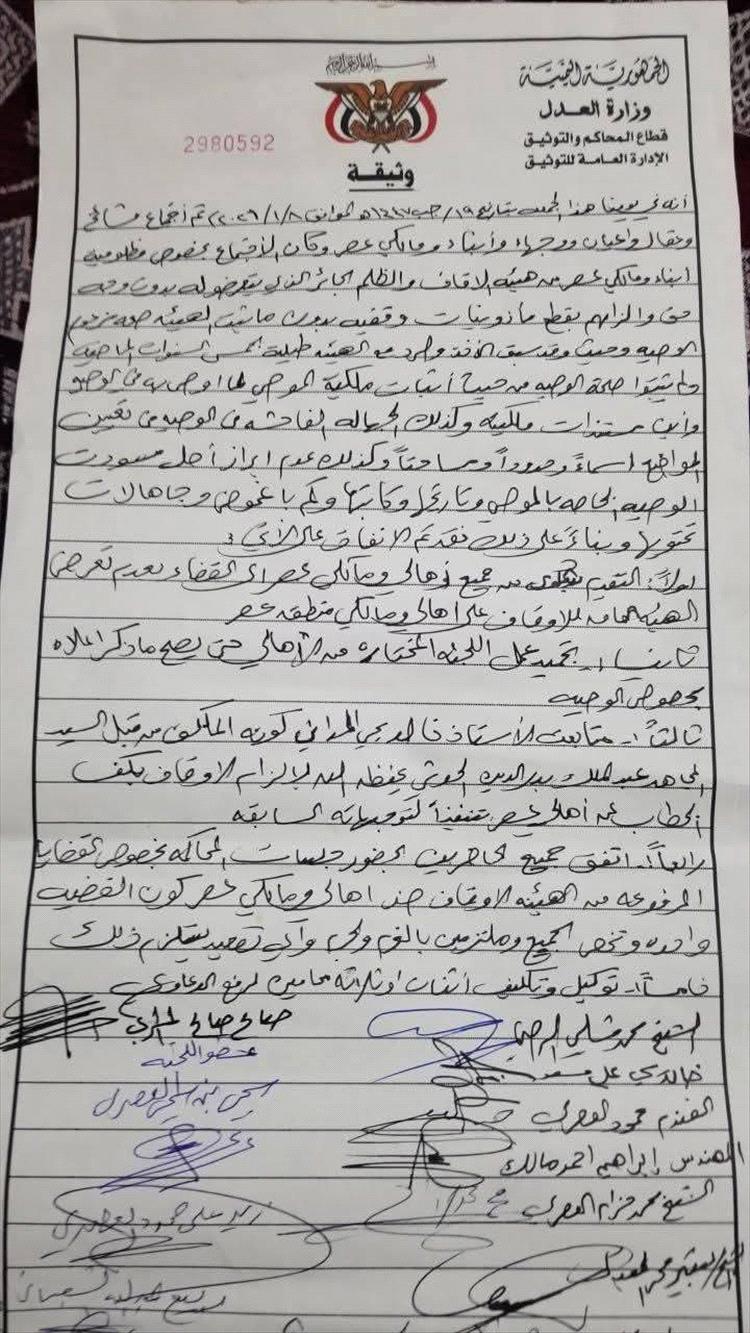 الجمهورية اليمنية
وزارة العدل
قطاع المحاكم والتوثيق
الإدارة العامة للتوثيق
2980592
وثيقة
أنه في يومنا هذا الجمعه بتاريخ ١٩/رجب/١٤٤٧هـ الموافق ٢٠٢٦/١/٨م تم أجتماع مشائخ
وعقال واعيان ووجهاء وأبناء ومالكي عصر وكان الأجتماع بخصوص مظلوميه
أبناء ومالكي عصر من هيئه الاوقاف والظلم الجائر الذي يتعرضو له بدون وجه
حق والزامهم بقطع مأذونيات وقفيه بدون ما تثبت الهيئه صحه
الوصيه وحيث وقد سبق الأخذ والرد مع الهيئه طيلة الخمس السنوات الماضيه
ولم يثبتوا صحة الوصيه من حيث أثبات ملكية الموصي لما اوصى به في الوصيه
وأين مستندات ملكيته وكذلك الجهاله الفاحشه في الوصيه في تعيين
المواضع اسماءً وحدوداً ومساحتاً وكذلك عدم ابراز أصل مسودت
الوصيه الخاصه بالموصي وتاريخها وكاتبها وكم با غموض وجاهالات
تحتويها وبناءً على ذلك فقد تم الاتفاق على الأتي :
اولاً:- التقدم بشكوى من جميع أهالي ومالكي عصر الى القضاء بعدم تعرض
الهيئه العامه للاوقاف على اهالي ومالكي منطقه عصر
ثانياً :- تجميد عمل اللجنه المختاره من الأهالي حتى يصح ما ذكر اعلاه
بخصوص الوصيه
ثالثاً :- متابعت الأستاذ خالد يحي المداني كونه المكلف من قبل السيد
المجاهد عبدالملك بدرالدين الحوثي يحفظه الله لإلزام الاوقاف بكف
الخطاب عن أهالي عصر تنفيذاً لتوجيهاته السابقه
رابعاً:- اتفق جميع الحاضرين بحضور جلسات المحاكمه بخصوص القضايا
المرفوعه من الهيئه الاوقاف ضد اهالي ومالكي عصر كون القضيه
واحده وتخص الجميع وملتزمين بالغرم وأي تصعيد يستلزم ذلك
خامساً:- توكيل وتكليف أثنان او ثلاثه محامين لرفع الدعاوى
الشيخ محمد
صالح صالح
عضو اللجنه
خالد يحي علي
الفندم محمود العصري
المهندس إبراهيم احمد مالك
الشيخ محمد حزام العصري
زيد علي حمود العصري